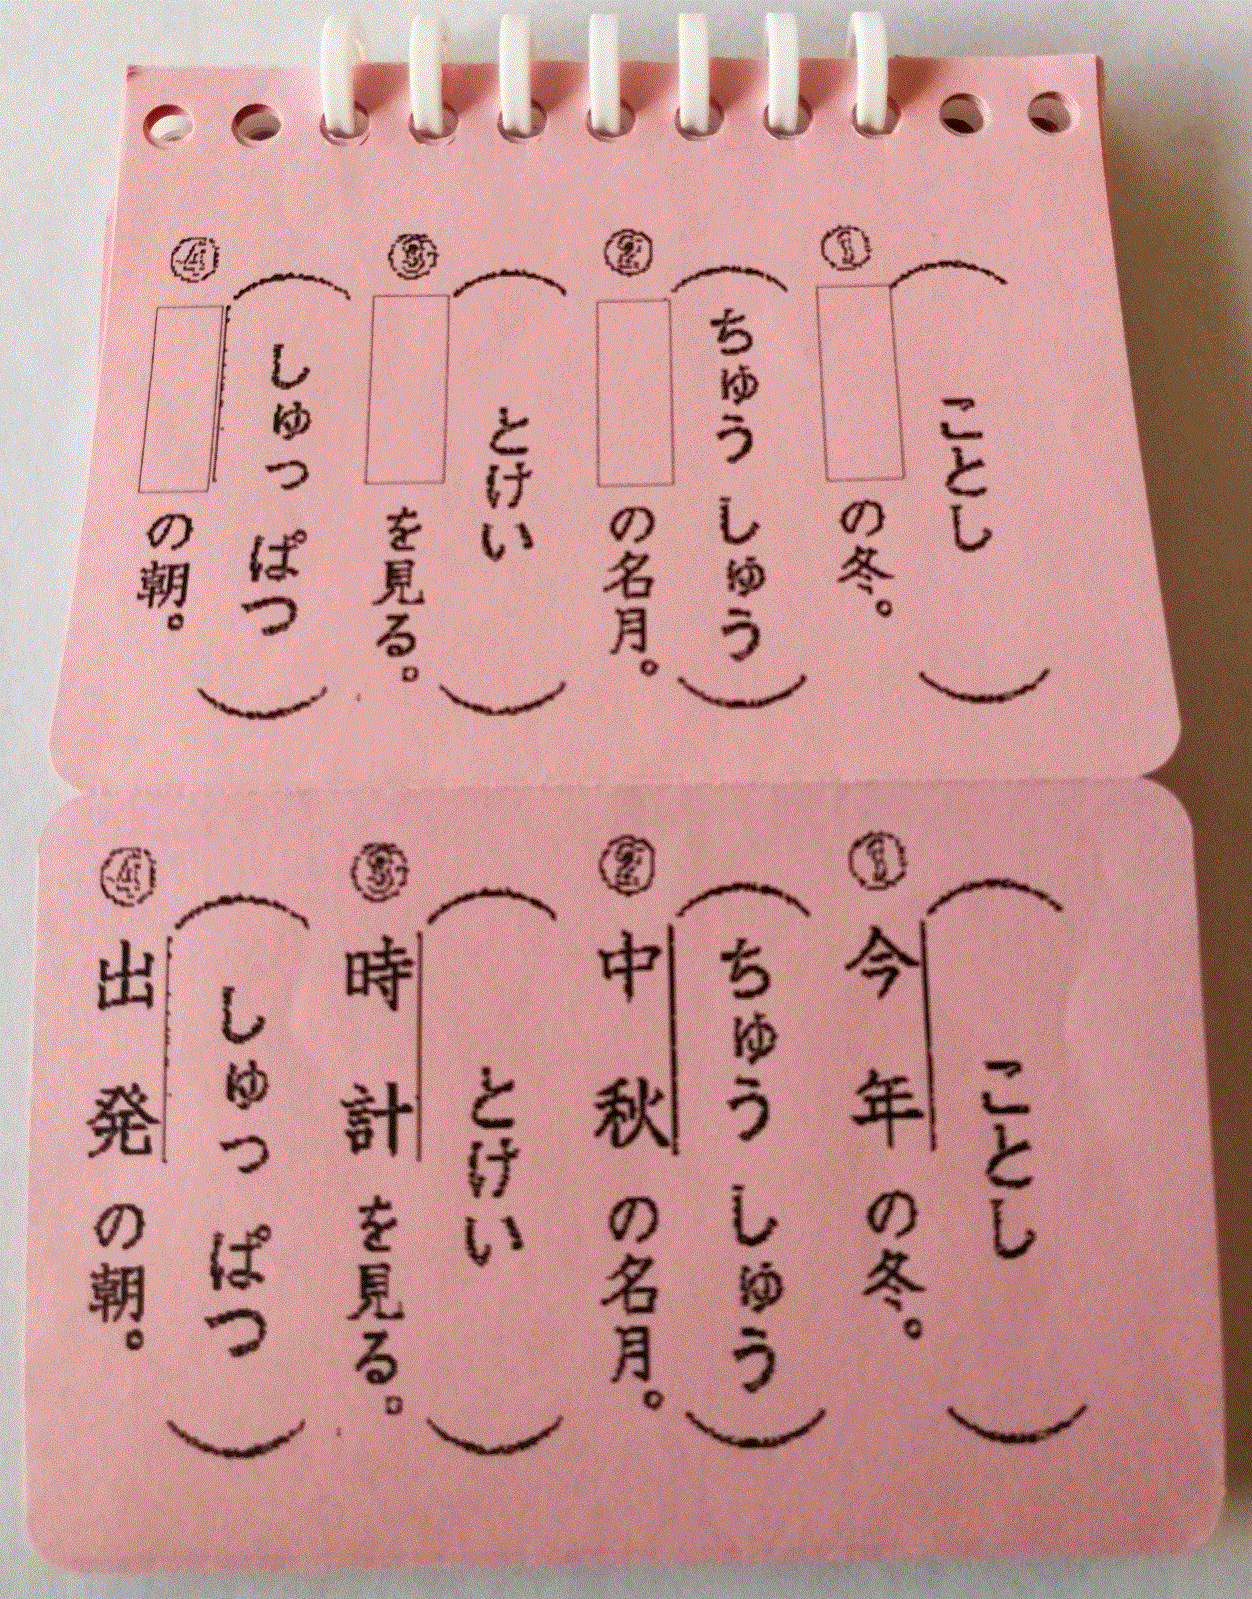 ① の冬。
（ことし）
② の名月。
（ちゅうしゅう）
③ を見る。
（とけい）
④ の朝。
（しゅっぱつ）
① 今年の冬。
（ことし）
② 中秋の名月。
（ちゅうしゅう）
③ 時計を見る。
（とけい）
④ 出発の朝。
（しゅっぱつ）